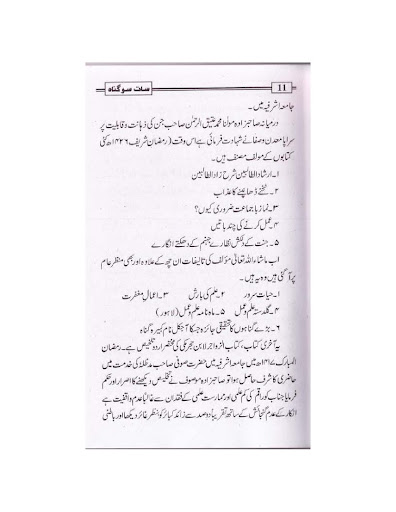 11 سات سو گناہ
جامعہ اشرفیہ میں۔
درمیانہ صاحبزادہ مولانا محمد عتیق الرحمٰن صاحب جن کی ذہانت و قابلیت پر
سراپا معدن وصفا نے شہادت فرمائی ہے اس وقت (رمضان شریف ۱۴۲۶ھ کئی
کتابوں کے مؤلف مصنف ہیں۔
۱۔ ارشاد الطالبین شرح زاد الطالبین
۲۔ ٹخنے ڈھانپنے کا عذاب
۳۔ نماز باجماعت ضروری کیوں؟
۴۔ عمل کرنے کی چند باتیں
۵۔ جنت کے دلکش نظارے جہنم کے دھکتے انگارے
اب ماشاءاللہ تعالیٰ مؤلف کی تالیفات ان چھ کے علاوہ اور بھی منظر عام
پر آگئی ہیں وہ یہ ہیں۔
۱۔ حیات سرور ۲۔ علم کی بارش ۳۔ اعمال مغفرت
۴۔ گلدستہ علم و عمل ۵۔ ماہنامہ علم و عمل (لاہور)
۶۔ بڑے گناہوں کا تحقیقی جائزہ جسکا آجکل نام کبیرہ گناہ
یہ آخری کتاب، کتاب الزواجر لابن حجر مکی کی مختصر اردو تلخیص ہے۔ رمضان
المبارک ۱۴۱۷ھ میں جامعہ اشرفیہ میں حضرت صوفی صاحب مدظلہ کی خدمت میں
حاضری کا شرف حاصل ہوا تو صاحبزادہ موصوف نے تلخیص دیکھنے کا اصرار اور حکم
فرمایا جناب کو راقم کی کم علمی اور ممارست علمی کے فقدان سے غالبا عدم واقفیت ہے
انکار کے عدم گنجائش کے ساتھ تقریبا دو صد سے زائد کبائر کو بنظر غائر دیکھا اور بالفی